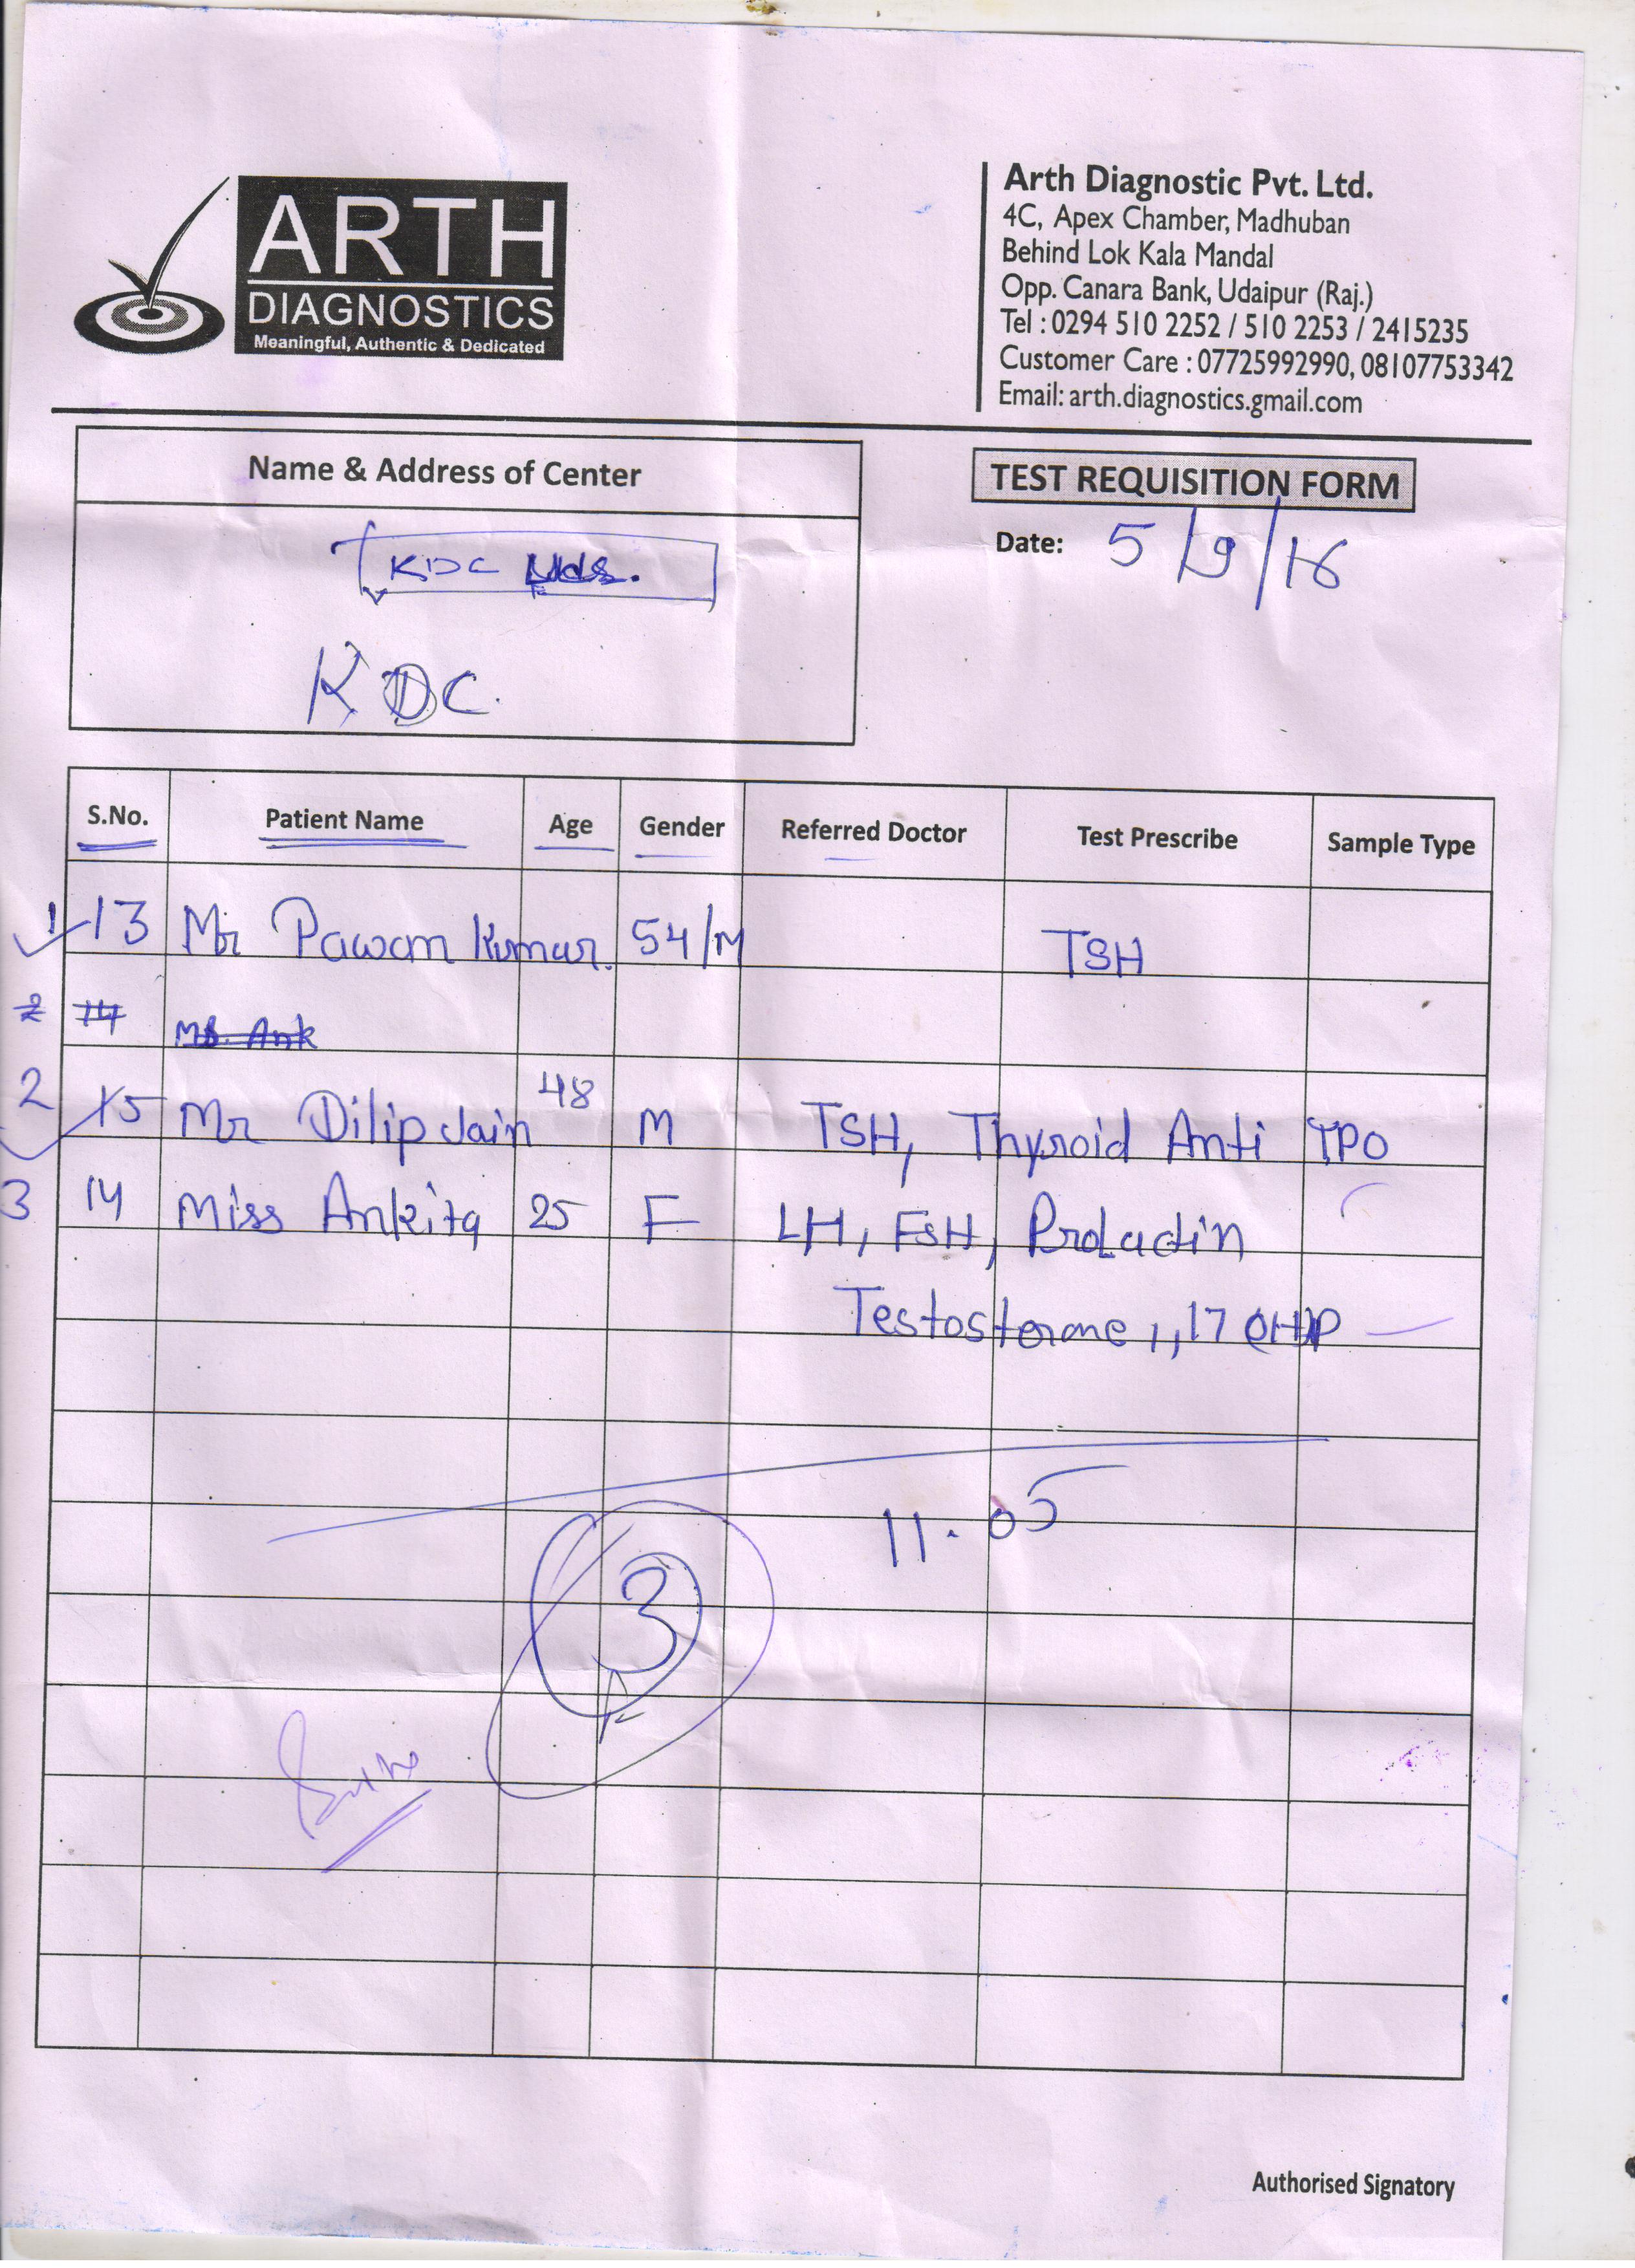 ARTH
DIAGNOSTICS
Meaningful, Authentic & Dedicated
Arth Diagnostic Pvt. Ltd.
4C, Apex Chamber, Madhuban
Behind Lok Kala Mandal
Opp. Canara Bank, Udaipur (Raj.)
Tel : 0294 510 2252 / 510 2253 / 2415235
Customer Care : 07725992990, 08107753342
Email: arth.diagnostics.gmail.com
Name & Address of Center
TEST REQUISITION FORM
Date: 5/9/16
KDC
KDC.
S.No. Patient Name Age Gender Referred Doctor Test Prescribe Sample Type
1 13 Mr Pawan Kumar. 54/M TSH
2 14 Ms. Ank
2 15 Mr Dilip Jain 48 M TSH, Thyroid Anti TPO
3 14 Miss Ankita 25 F LH, FSH, Proladin
Testosterone , 17 OHP
11.05
3
Authorised Signatory